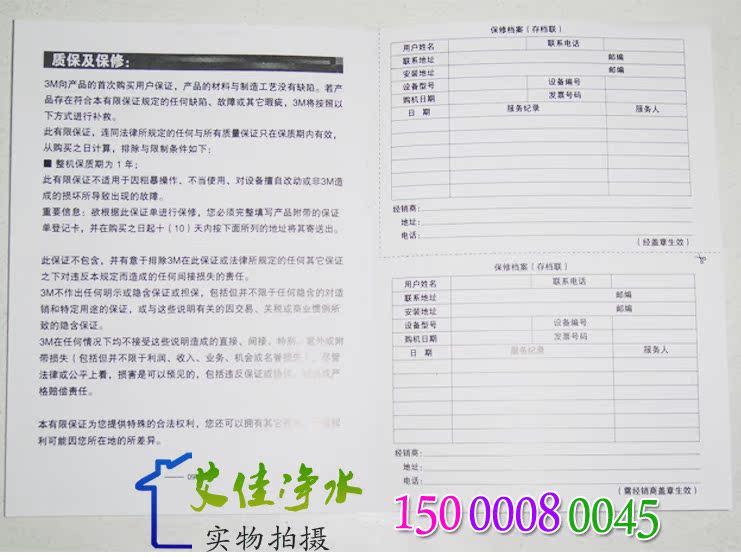 质保及保修：
3M向产品的首次购买用户保证，产品的材料与制造工艺没有缺陷。若产
品存在符合本有限保证规定的任何缺陷、故障或其它瑕疵，3M将按照以
下方式进行补救。
此有限保证，连同法律所规定的任何与所有质量保证只在保质期内有效，
从购买之日计算，排除与限制条件如下：
■ 整机保质期为 1 年；
此有限保证不适用于因粗暴操作、不当使用、对设备擅自改动或非3M造
成的损坏所导致出现的故障。
重要信息：欲根据此保证单进行保修，您必须完整填写产品附带的保证
单登记卡，并在购买之日起十（10）天内按下面所列的地址将其寄送出。
此保证不包含，并有意于排除3M在此保证或法律所规定的任何其它保证
之下对违反本规定而造成的任何间接损失的责任。
3M不作出任何明示或隐含保证或担保，包括但并不限于任何隐含的对适
销和特定用途的保证，或与这些说明有关的因交易、关税或商业惯例所
致的隐含保证。
3M在任何情况下均不接受这些说明造成的直接、间接、特别、意外或附
带损失（包括但并不限于利润、收入、业务、机会或名誉损失），尽管
法律或公平上看，损害是可以预见的，包括违反保证或协议、
格赔偿责任。
本有限保证为您提供特殊的合法权利，您还可以拥有其它
利可能因您所在地的所差异。
09
保修档案（存档联）
用户姓名 联系电话
联系地址 邮编
安装地址 邮编
设备型号 设备编号
购机日期 发票号码
日 期 服务纪录 服务人
经销商：
地址：
电话：
（经盖章生效）
保修档案（存档联）
用户姓名 联系电话
联系地址 邮编
安装地址 邮编
设备型号 设备编号
购机日期 发票号码
日 期 服务纪录 服务人
经销商：
地址：
电话：
（需经销商盖章生效）
艾佳净水
实物拍摄
15000080045